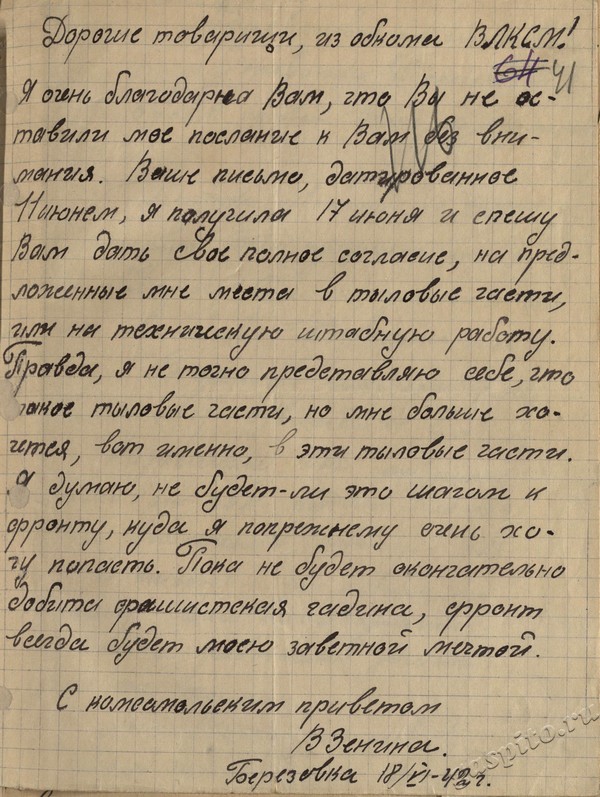 Дорогие товарищи, из обкома ВЛКСМ!
64 41
Я очень благодарна Вам, что Вы не ос-
тавили мое послание к Вам без вни-
мания. Ваше письмо, датированное
11 июнем, я получила 17 июня и спешу
Вам дать свое полное согласие, на пред-
ложенные мне места в тыловые части,
или на техническую штабную работу.
Правда, я не точно представляю себе, что
такое тыловые части, но мне больше хо-
чется, вот именно, в эти тыловые части.
Я думаю, не будет-ли это шагом к
фронту, куда я попрежнему очень хо-
чу попасть. Пока не будет окончательно
добита фашистская гадина, фронт
всегда будет моею заветной мечтой.
С комсомольским приветом
В Зенина.
Березовка 18/VI-42 г.
espito.ru